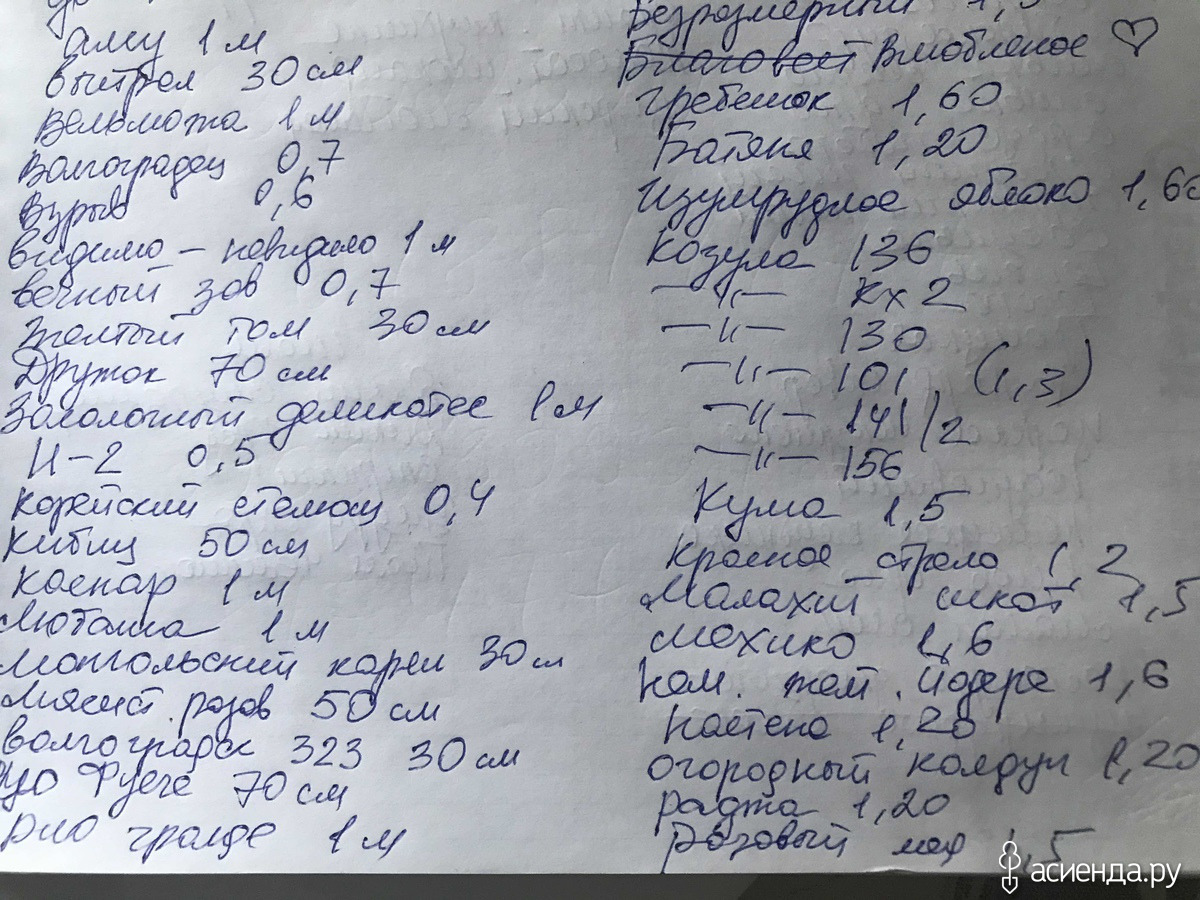 Аму 1 м
Выстрел 30 см
Вельможа 1 м
Волгоградец 0,7
Взрыв 0,6
Видимо - невидимо 1 м
вечный зов 0,7
Желтый том 30 см
Дружок 70 см
деликатес 1 м
0,5
Корейский 0,4
Кибиц 50 см
Каспар 1 м
Любаша 1 м
Монгольский карли 30 см
Мясист. розов 50 см
Волгоградск 323 30 см
Фуего 70 см
Рио гранде 1 м
Безразмерный
Благовест Влюбленое ♡
гребешок 1,60
Батяня 1,20
Изумрудное яблоко 1,60
Козула 136
—"— Кх2
—"— 130
—"— 101 (1,3)
—"— 141/2
—"— 156
Кума 1,5
Красное стрела 1,2
Малахит шкат 1,5
Мохико 1,6
жем. Йодера 1,6
Настена 1,20
огородный колдун 1,20
раджа 1,20
Розовый 1,5
асиенда.ру